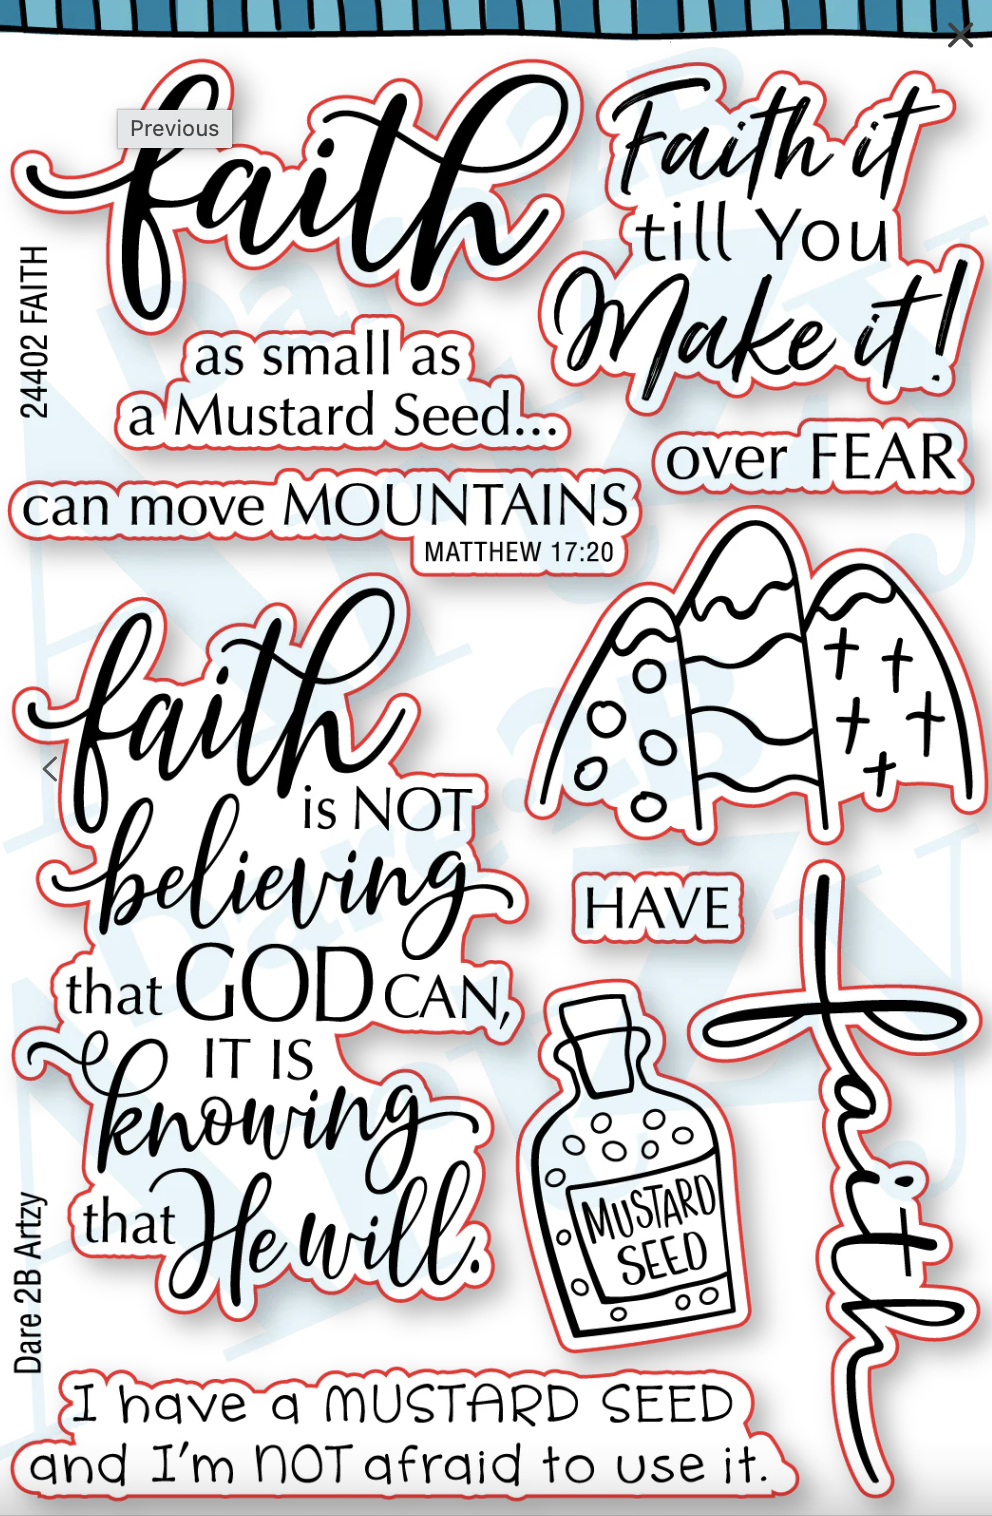 faith
Previous
as small as
a Mustard Seed...
can move MOUNTAINS
MATTHEW 17:20
Faith it
till You
Make it!
over FEAR
24402 FAITH
faith
is NOT
believing
that GOD CAN,
IT IS
knowing
that He will.
HAVE
faith
MUSTARD
SEED
Dare 2B Artzy
I have a MUSTARD SEED
and I'm NOT afraid to use it.
Dare 2B
Artzy
Dare 2B
Artzy